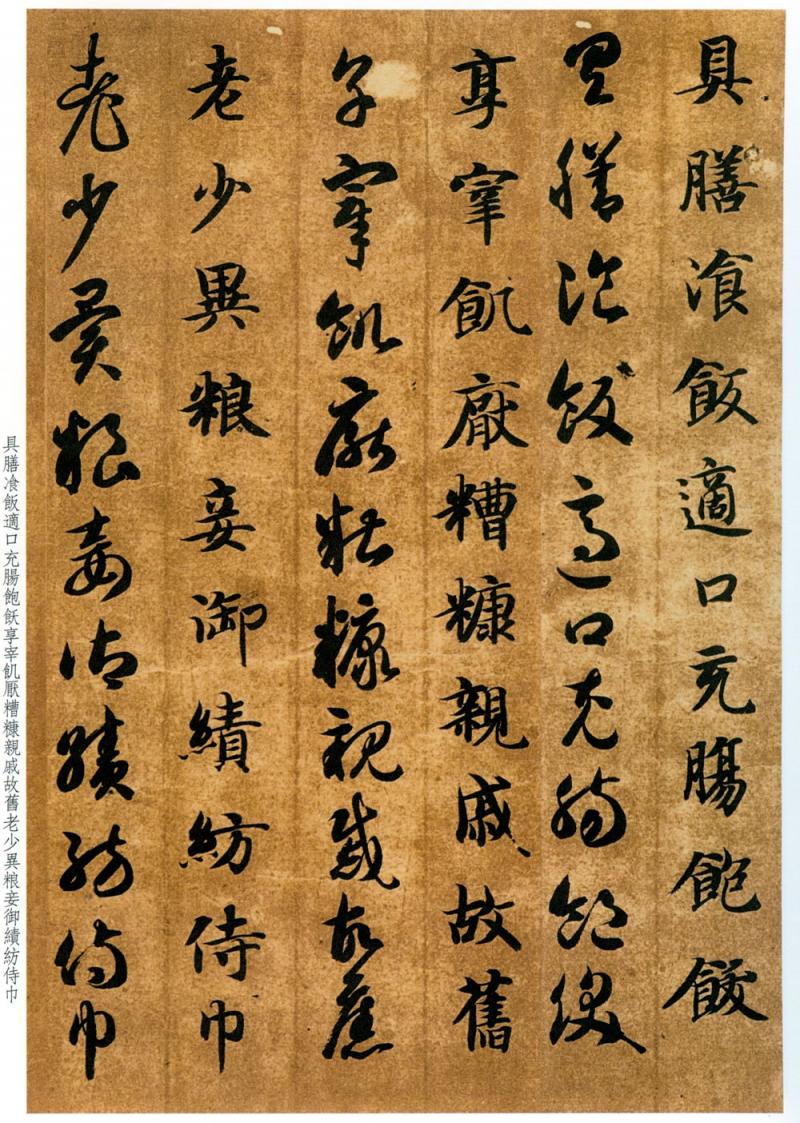 具膳湌飯適口充腸飽飫
具膳湌飯適口充腸飽飫
享宰飢厭糟糠親戚故舊
享宰飢厭糟糠親戚故舊
老少異粮妾御績紡侍巾
老少異粮妾御績紡侍巾
具膳飡飯適口充腸飽飫享宰飢厭糟糠親戚故舊老少異粮妾御績紡侍巾